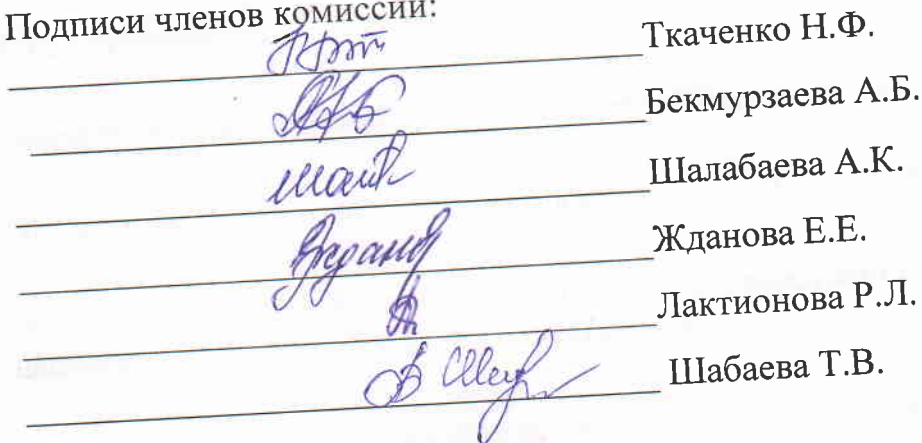 Подписи членов комиссии:
Ткаченко Н.Ф.
Бекмурзаева А.Б.
Шалабаева А.К.
Жданова Е.Е.
Лактионова Р.Л.
Шабаева Т.В.